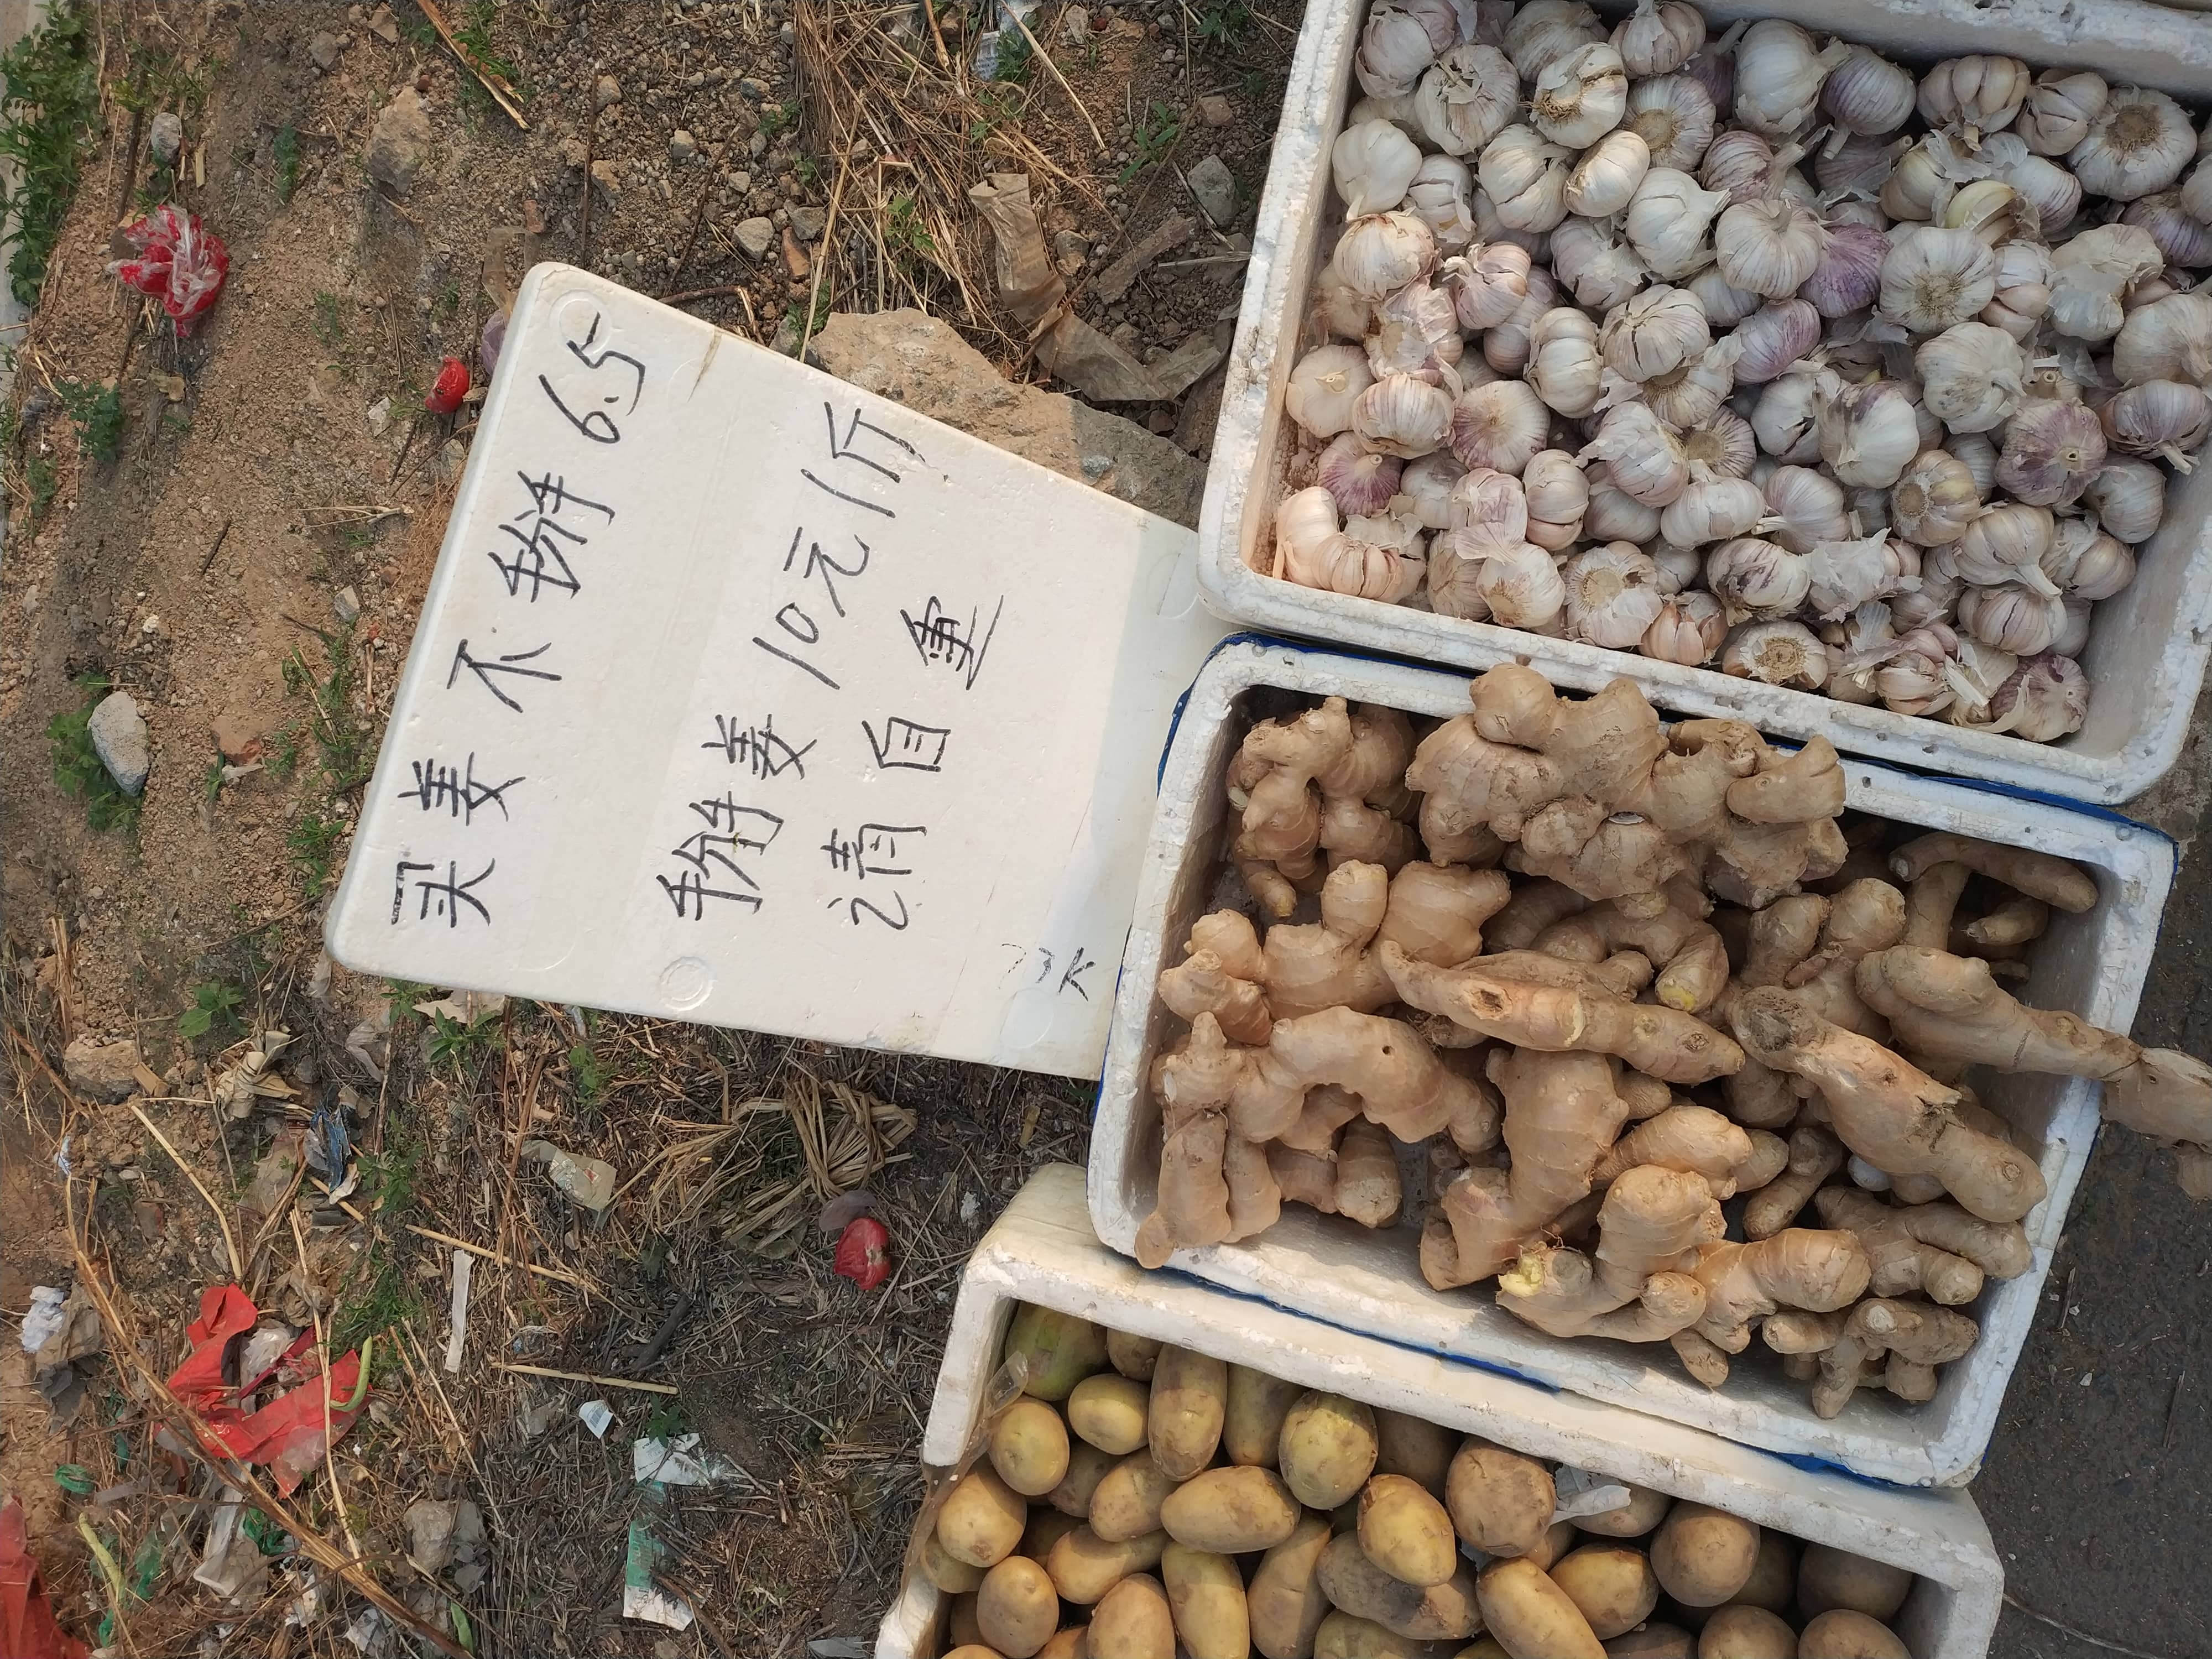 买姜不掰6.5
掰姜10元1斤
请自重